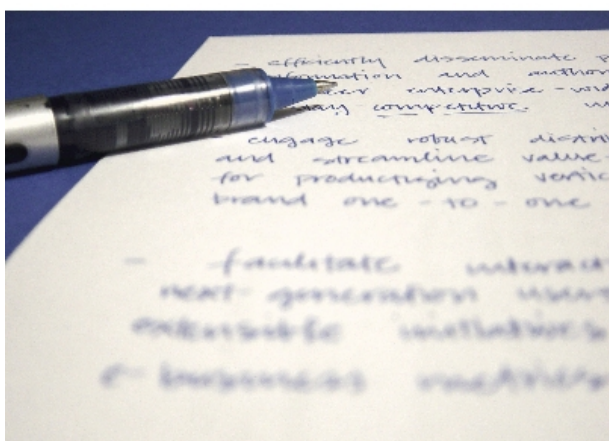 - efficiently disseminate
and
enterprise - wid
competitive.
engage robust distri
and streamline value
for productizing vertic
brand one - to - one
- facilitate interact
next-generation user
extensible initiatives
e-business metrics